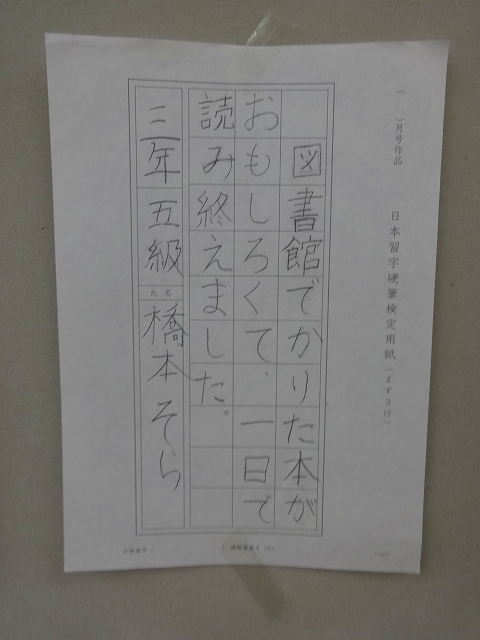 （　　）月号作品
日本習字硬筆検定用紙（ます3行）
図書館でかりた本が
おもしろくて、一日で
読み終えました。
三年 五級 氏名 橋本そら